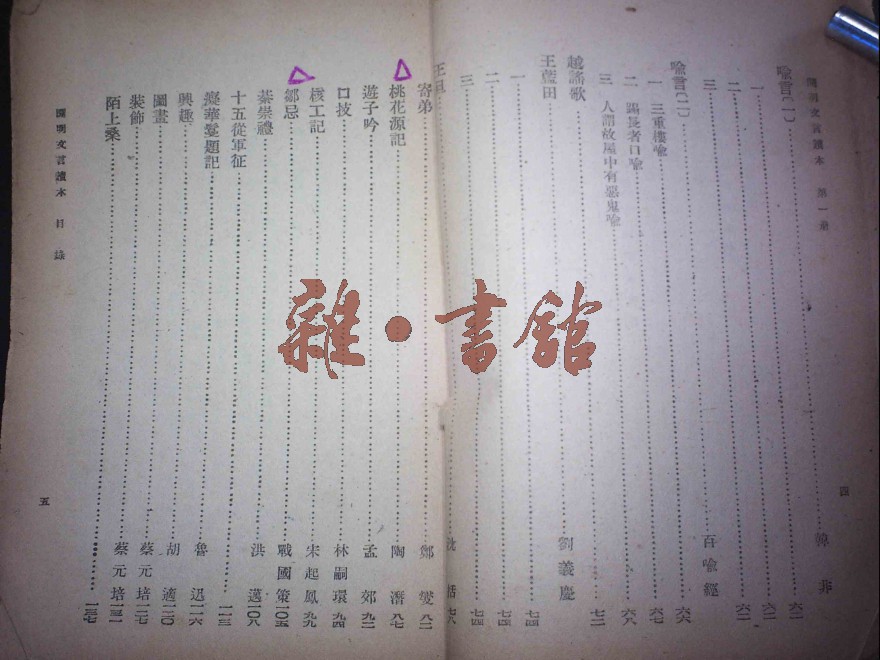 開明文言讀本　第一册
四
喻言(一)……韓非 六二
一……六二
二……六二
三……六二
喻言(二)……百喻經 六六
一　三重樓喻……六七
二　蹋長者口喻……六八
三　人謂故屋中有惡鬼喻……七二
越謠歌
王藍田……劉義慶 七四
一……七四
二……七四
三……七四
沈括 七八
寄弟……鄭燮 八二
桃花源記……陶潛 八七
遊子吟……孟郊 九二
口技……林嗣環 九四
核工記……宋起鳳 九九
鄒忌……戰國策 一〇五
綦崇禮……洪邁 一〇八
十五從軍征……一一三
癡華鬘題記……魯迅 一一六
興趣……胡適 一二〇
圖畫……蔡元培 一二七
裝飾……蔡元培 一三一
陌上桑……一三七
開明文言讀本　目錄
五
雜・書舘